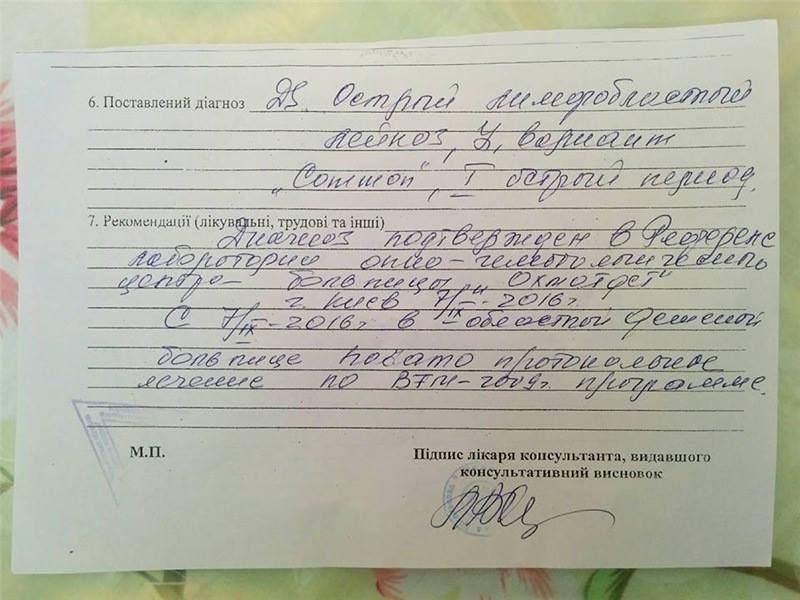 6. Поставлений діагноз DS. Острый лимфобластный
лейкоз, L1, вариант
"Common", I острый период.
7. Рекомендації (лікувальні, трудові та інші)
Диагноз подтвержден в Референс
лаборатории онко-гематологической
центра больницы "Охматдет"
г. Киев 7/IX-2016г.
С 7/IX-2016г. в областной детской
больнице начато протокольное
лечение по -2009г. программе.
М.П.
Підпис лікаря консультанта, видавшого
консультативний висновок